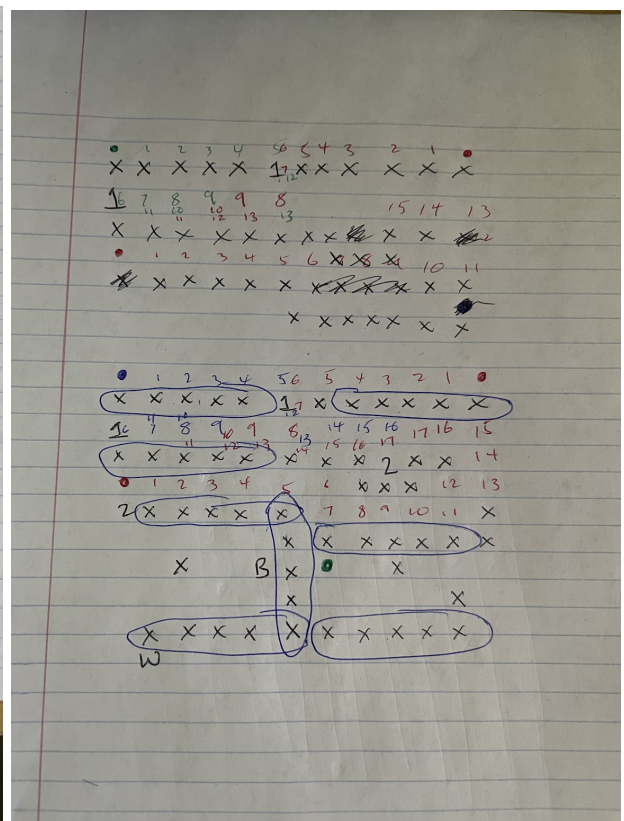 1 2 3 4 56 5 4 3 2 1
X X X X X 17 X X X X X X
12
16 7 8 9 9 8 15 14 13
11 10 10 12 13 13
11
X X X X X X X X X X
1 2 3 4 5 6 10 11
X X X X X X X X
X X X X X X X
1 2 3 4 56 5 4 3 2 1
X X X X X 17 X X X X X X
12
16 7 8 9 10 9 8 13 14 15 16 17 16 15
11 10 11 12 13 14 15 16 17
X X X X X X X X 2 X X 14
1 2 3 4 5 6 X X X 12 13
2 X X X X X 7 8 9 10 11 X
X X X X X X X
X B X X
X X
X X X X X X X X X X
W